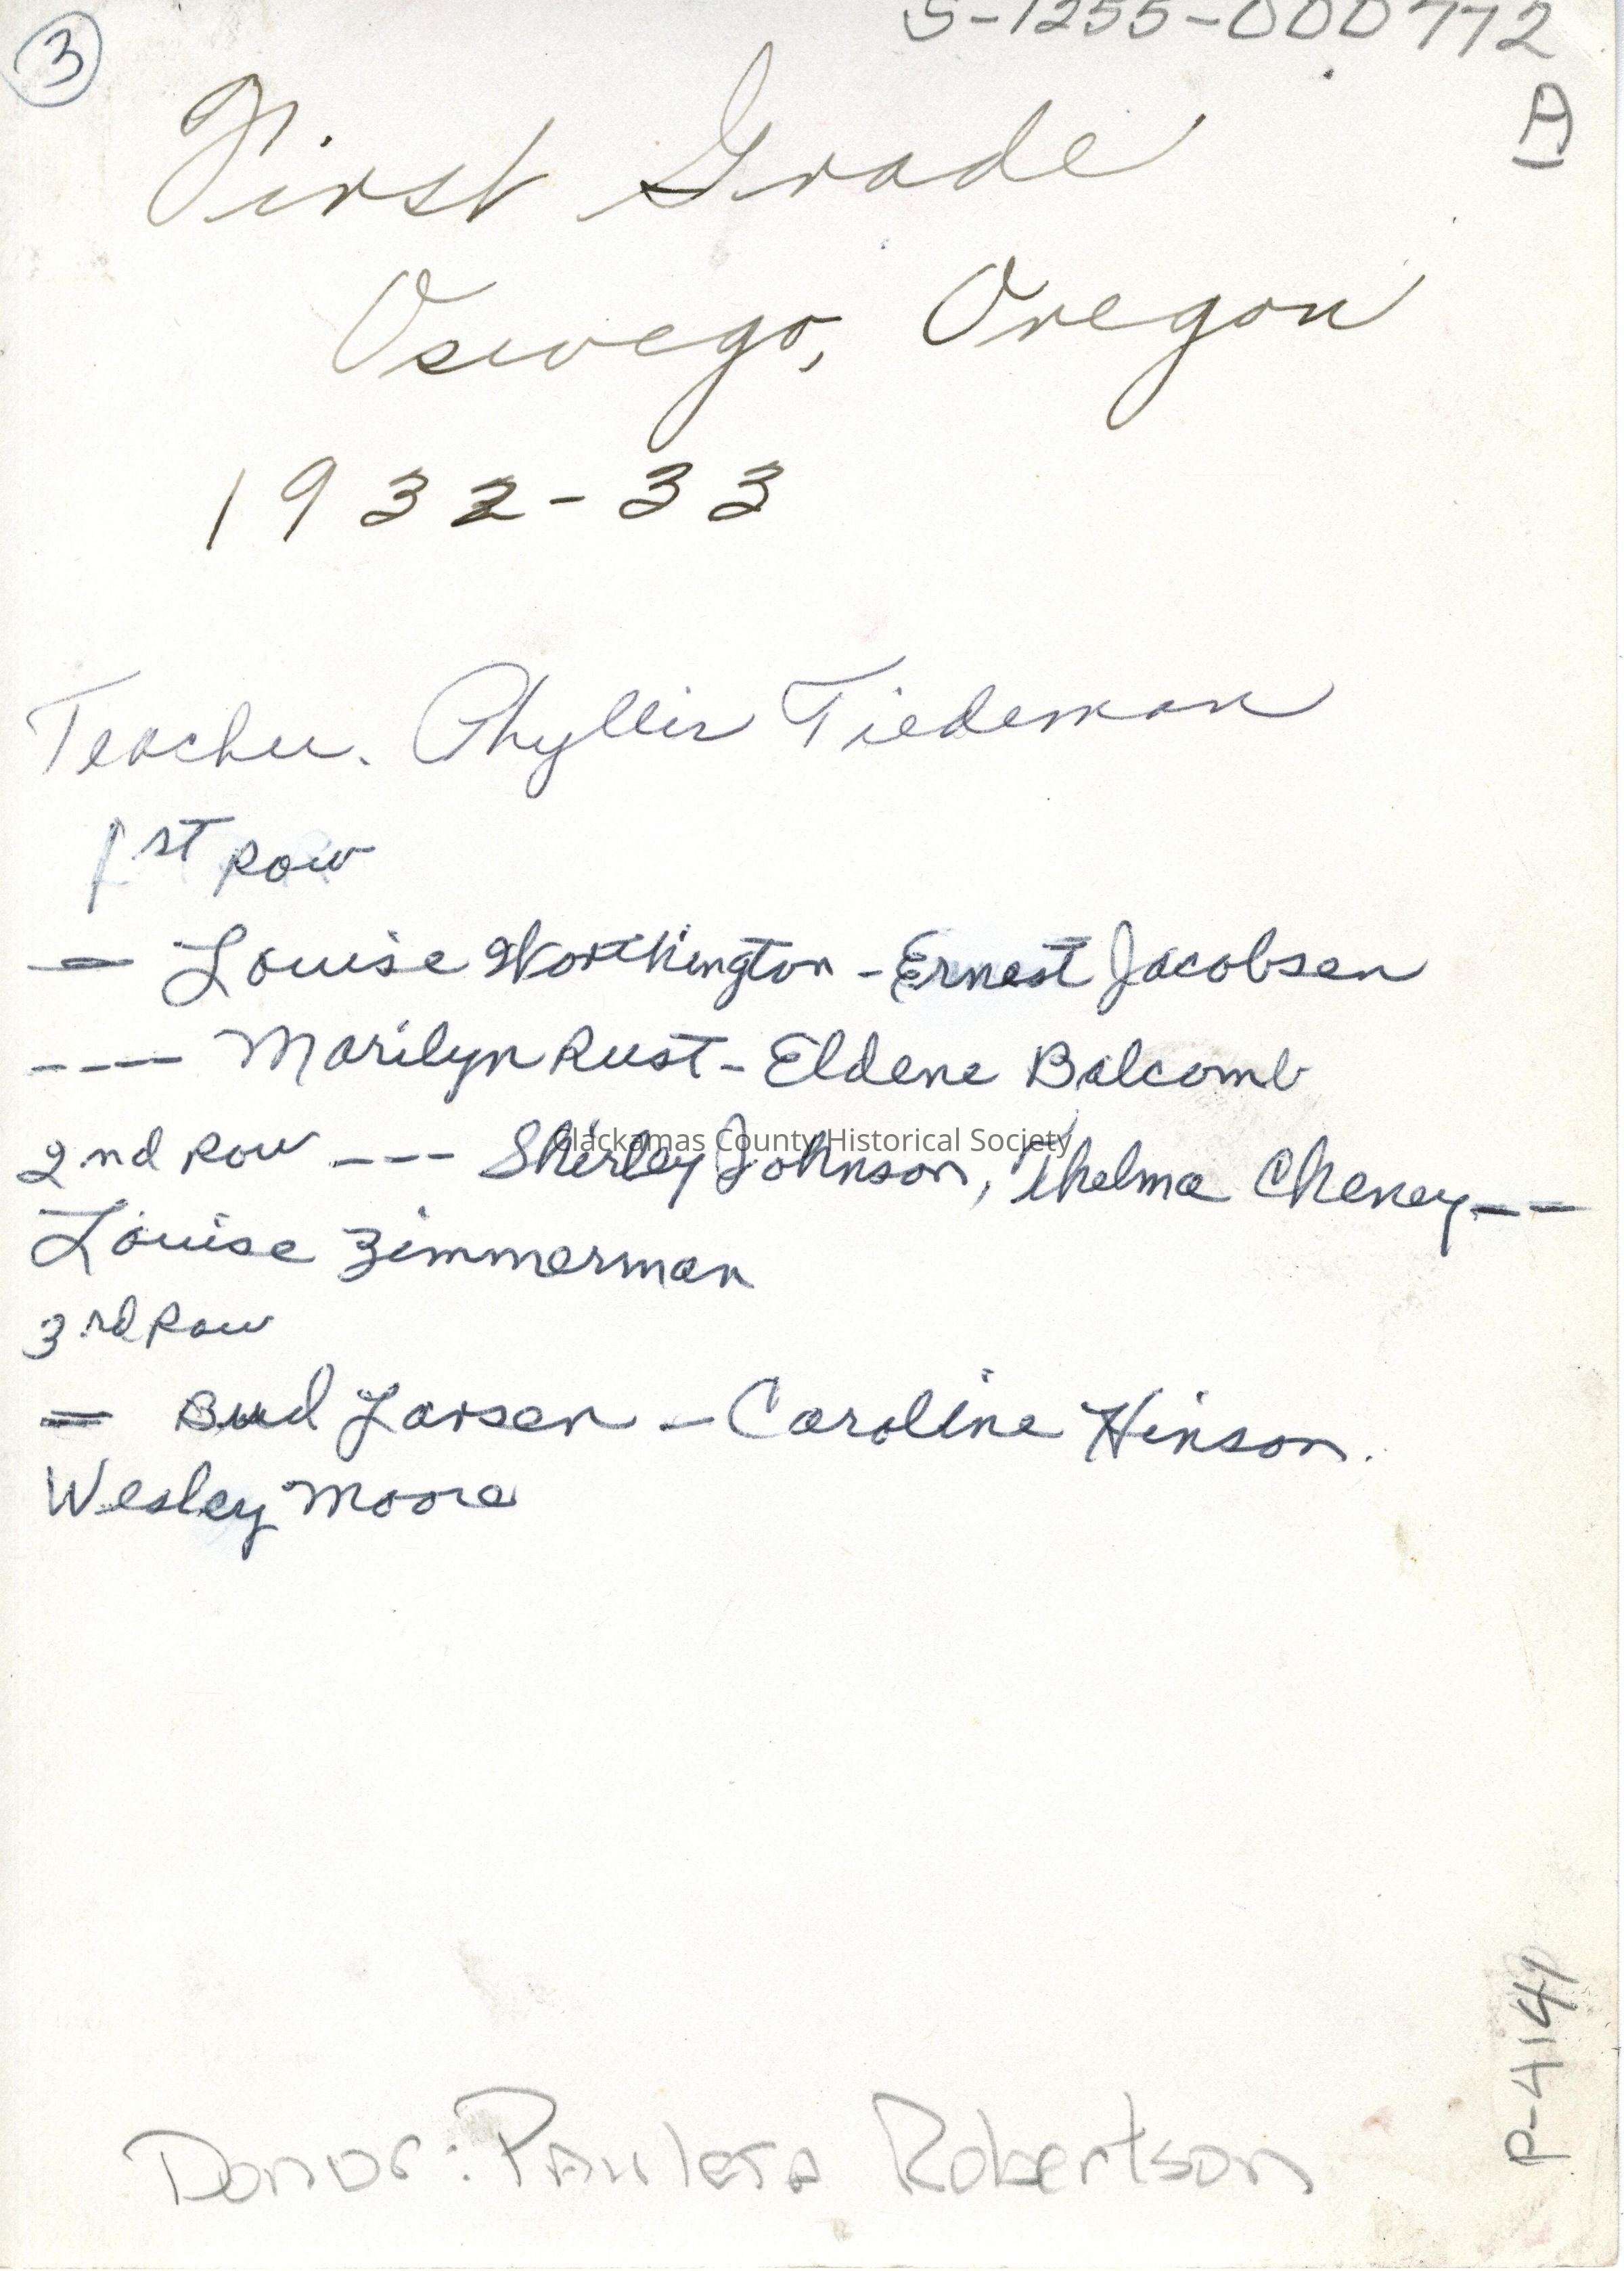 3
S-1255-000772
A
First Grade
Oswego, Oregon
1932-33
Teacher. Phyllis Tiedeman
1st Row
— Louise Worthington - Ernest Jacobsen
---- Marilyn Rust - Eldene Balcomb
Clackamas County Historical Society
2nd Row --- Shirley Johnson, Thelma Cheney --
Louise Zimmerman
3rd Row
= Bud Larsen - Caroline Hinson.
Wesley Moore
P-414
Donor: Robertson